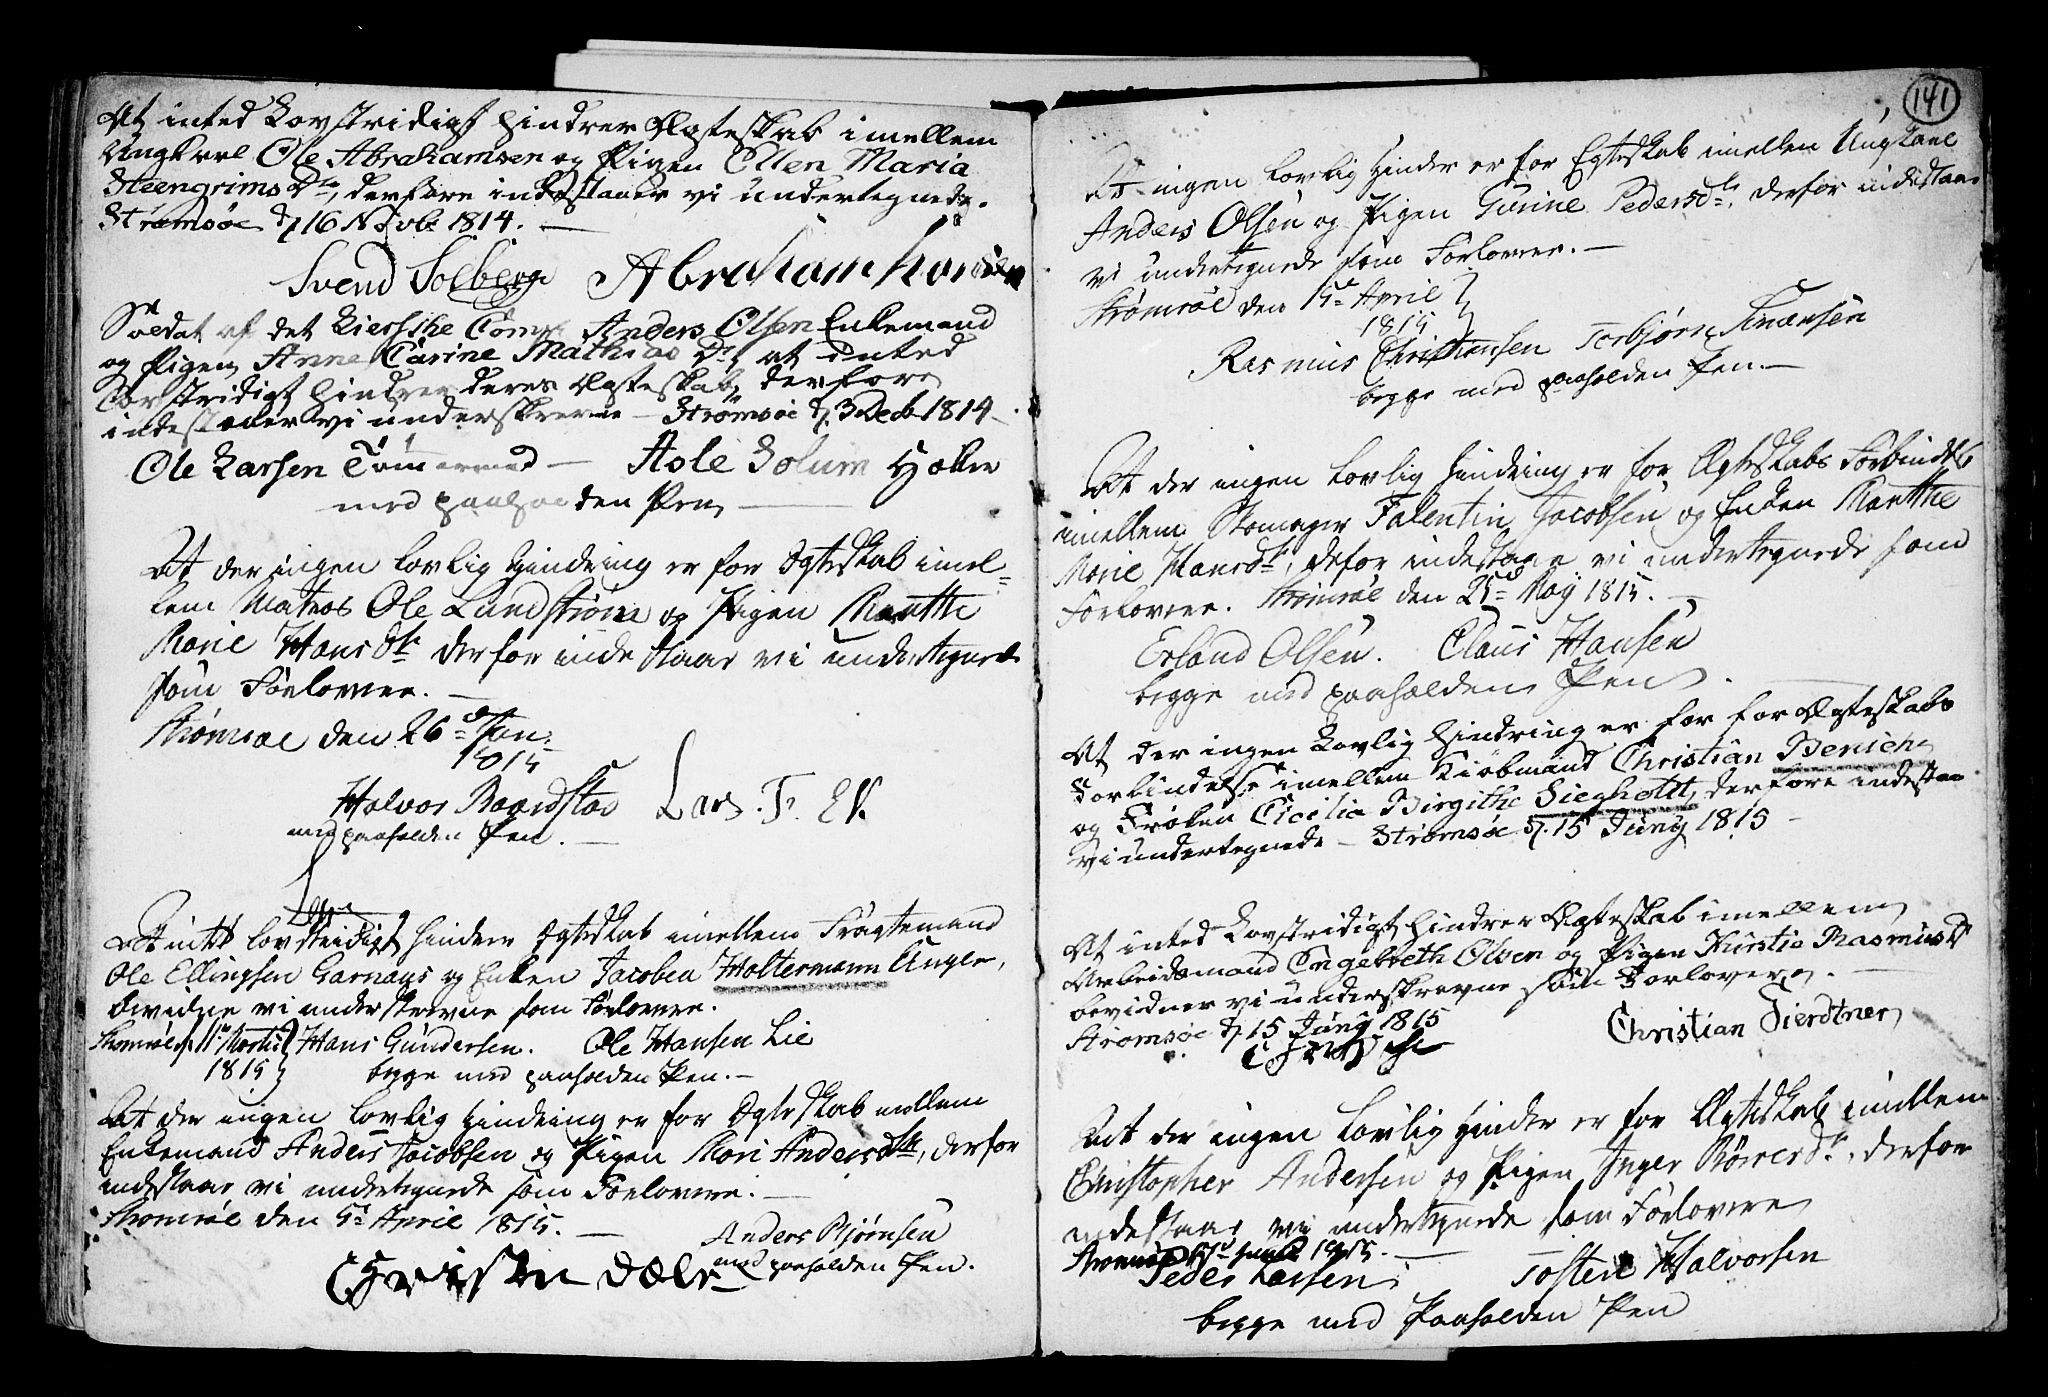 At inted Lovstridigt hindrer Ægteskab imellem
Ungkarl Ole Abrahamsen og Pigen Ellen Maria
Steengrims Dr, derfore indestaaer vi undertegnede.
Strømsøe d 16 Novbr 1814. —
Svend Solberg Abraham
Soldat af det Lierske Comp: Anders Olsen Enkemand
og Pigen Anne Carine Mathias Dr, at inted
Lovstridigt hindrer deres Ægteskab, derfore
indestaaer vi underskrevne — Strømsøe d 3 Decb 1814
Ole Larsen Tømmermand — Asle Solum
med paaholden Pen —
At der ingen lovlig Hindring er for Egteskab imel=
lem Matros Ole Lundstrøm og Pigen Marthe
Marie Hans Dr derfor indestaar vi undertegnede
som Forlovere. —
Strømsøe den 26d Jan:
1815
Halvor Baardstad Lars. T. Ek
med paaholden Pen. —
At intet lovstridigt hindrer Egteskab imellem Fragtemand
Ole Ellingsen Garnaas og Enken Jacobea Holtermann Unger,
bevidner vi underskrevne som Forlovere.
Strømsøe d 11te Martii Hans Gundersen. Ole Hansen Lie
1815 begge med paaholden Pen. —
At der ingen lovlig Hindring er for Egteskab mellem
Enkemand Anders Jacobsen og Pigen Mari Andersdtr, derfor
indestaar vi undertegnede som Forlovere. —
Strømsøe den 5d April 1815. —
Anders Bjørnsen
med paaholden Pen.
141
At ingen lovlig Hinder er for Egteskab imellem Ungkarl
Anders Olsen og Pigen Gurine Pedersdtr, derfor indestaar
vi undertegnede som Forlovere. —
Strømsøe den 15d April
1815
Rasmus Christiansen Torbjørn
begge med paaholden Pen. —
At der ingen lovlig Hindring er for Ægteskabs Forbindelse
imellem Skomager Falentin Jacobsen og Enken Marthe
Marie Hansdr, defor indestaar vi undertegnede som
Forlovere. Strømsøe den 25d May 1815. —
Erland Olsen. Claus Hansen
begge med paaholden Pen.
At der ingen Lovlig Hindring er for for Ægteskabs
Forbindelse imellem Kiøbmand Christian Bensch
og Frøken Cicilia Birgithe Sieghold, derfore indestaa
vi undertegnede — Strømsøe d. 15 Juny 1815 —
At inted Lovstridigt hindrer Ægteskab imellem
Arbeidsmand Engebreth Olsen og Pigen Kirstie Rasmus Dr
bevidner vi underskrevne som Forlovere. —
Strømsøe d 15 Juny 1815
Christian
At der ingen lovlig Hinder er for Ægteskab imellem
Christopher Andersen og Pigen Inger Børresdr. derfor
indestaar vi undertegnede som Forlovere
Strømsøe 1815. —
Peder Larsen Tosten Halvorsen
begge med Paaholden Pen